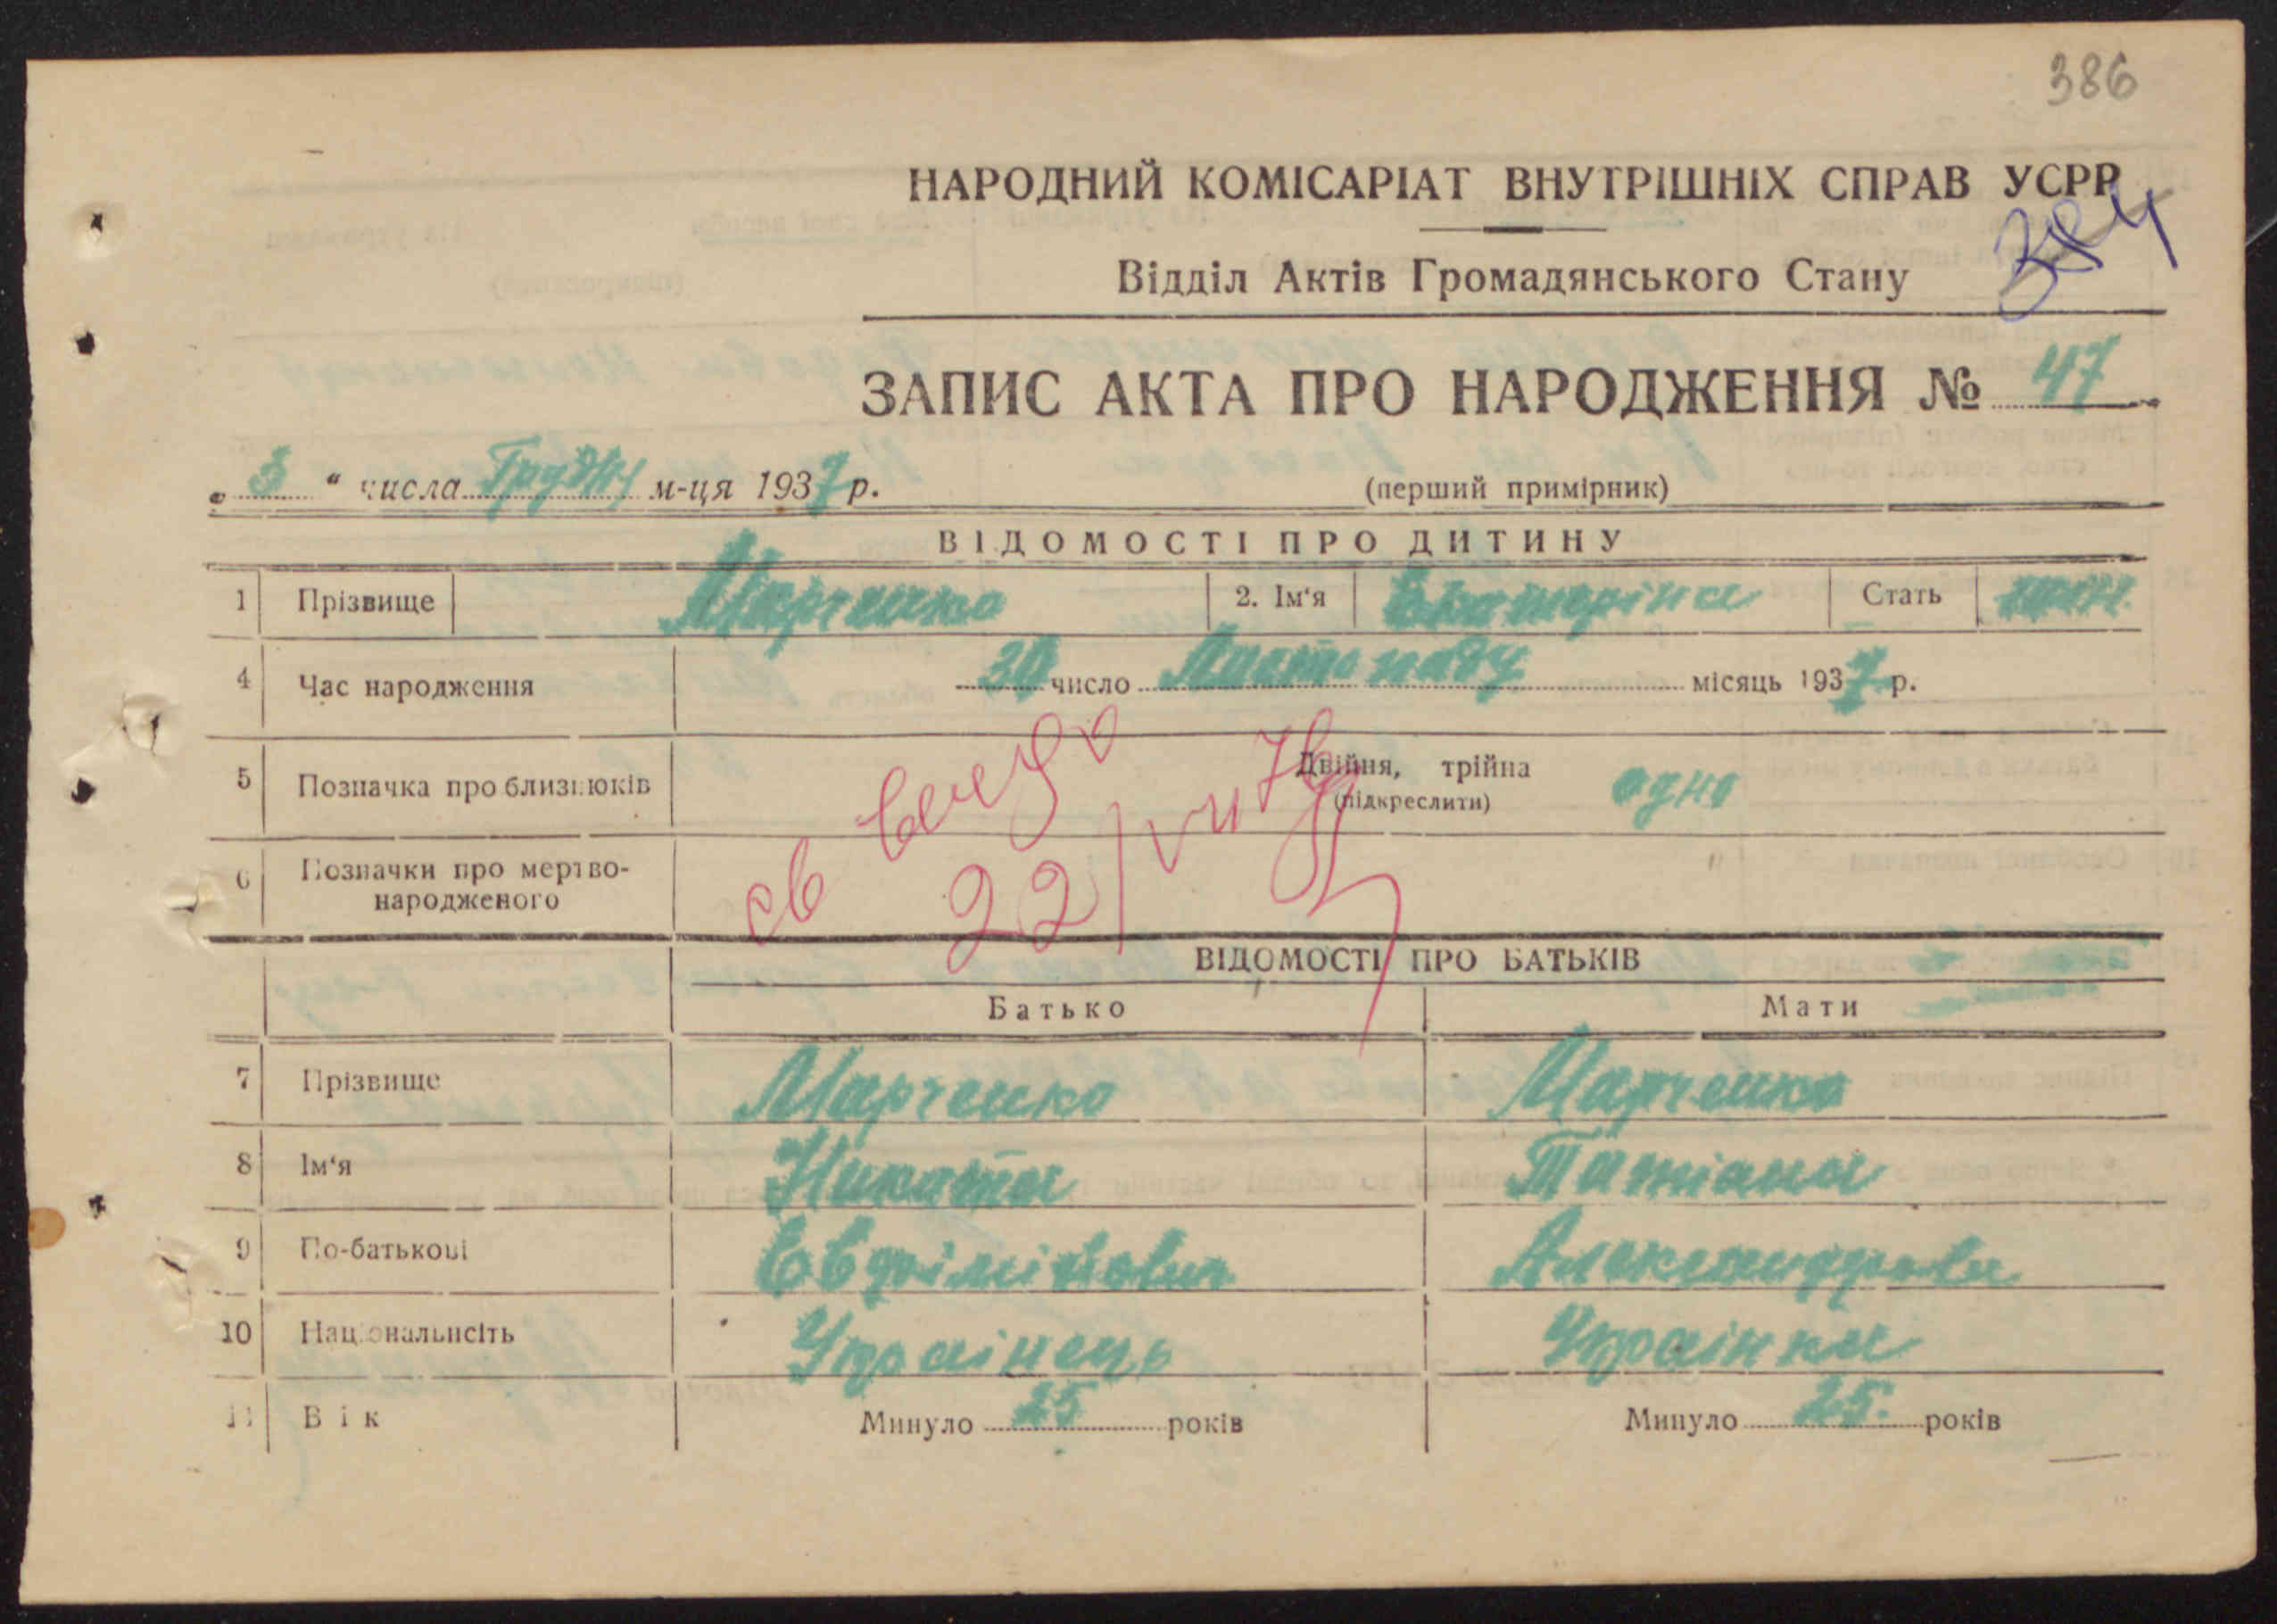 386
НАРОДНИЙ КОМІСАРІАТ ВНУТРІШНІХ СПРАВ УСРР
Відділ Актів Громадянського Стану
ЗАПИС АКТА ПРО НАРОДЖЕННЯ № 47
„ 3 “ числа Грудня м-ця 1937 р. (перший примірник)
ВІДОМОСТІ ПРО ДИТИНУ
1 Прізвище Марченко 2. Ім'я Екатеріна Стать жін.
4 Час народження 30 число Листопаду місяць 1937 р.
5 Позначка про близнюків Двійня, трійна одно
(підкреслити)
6 Позначки про мертво-
народженого
св выдго
22
ВІДОМОСТІ ПРО БАТЬКІВ
Батько Мати
7 Прізвище Марченко Марченко
8 Ім'я Никита Татіана
9 По-батькові Евфімінович Александровн
10 Національнсіть Украінець Украінка
11 Вік Минуло 25 років Минуло 25. років